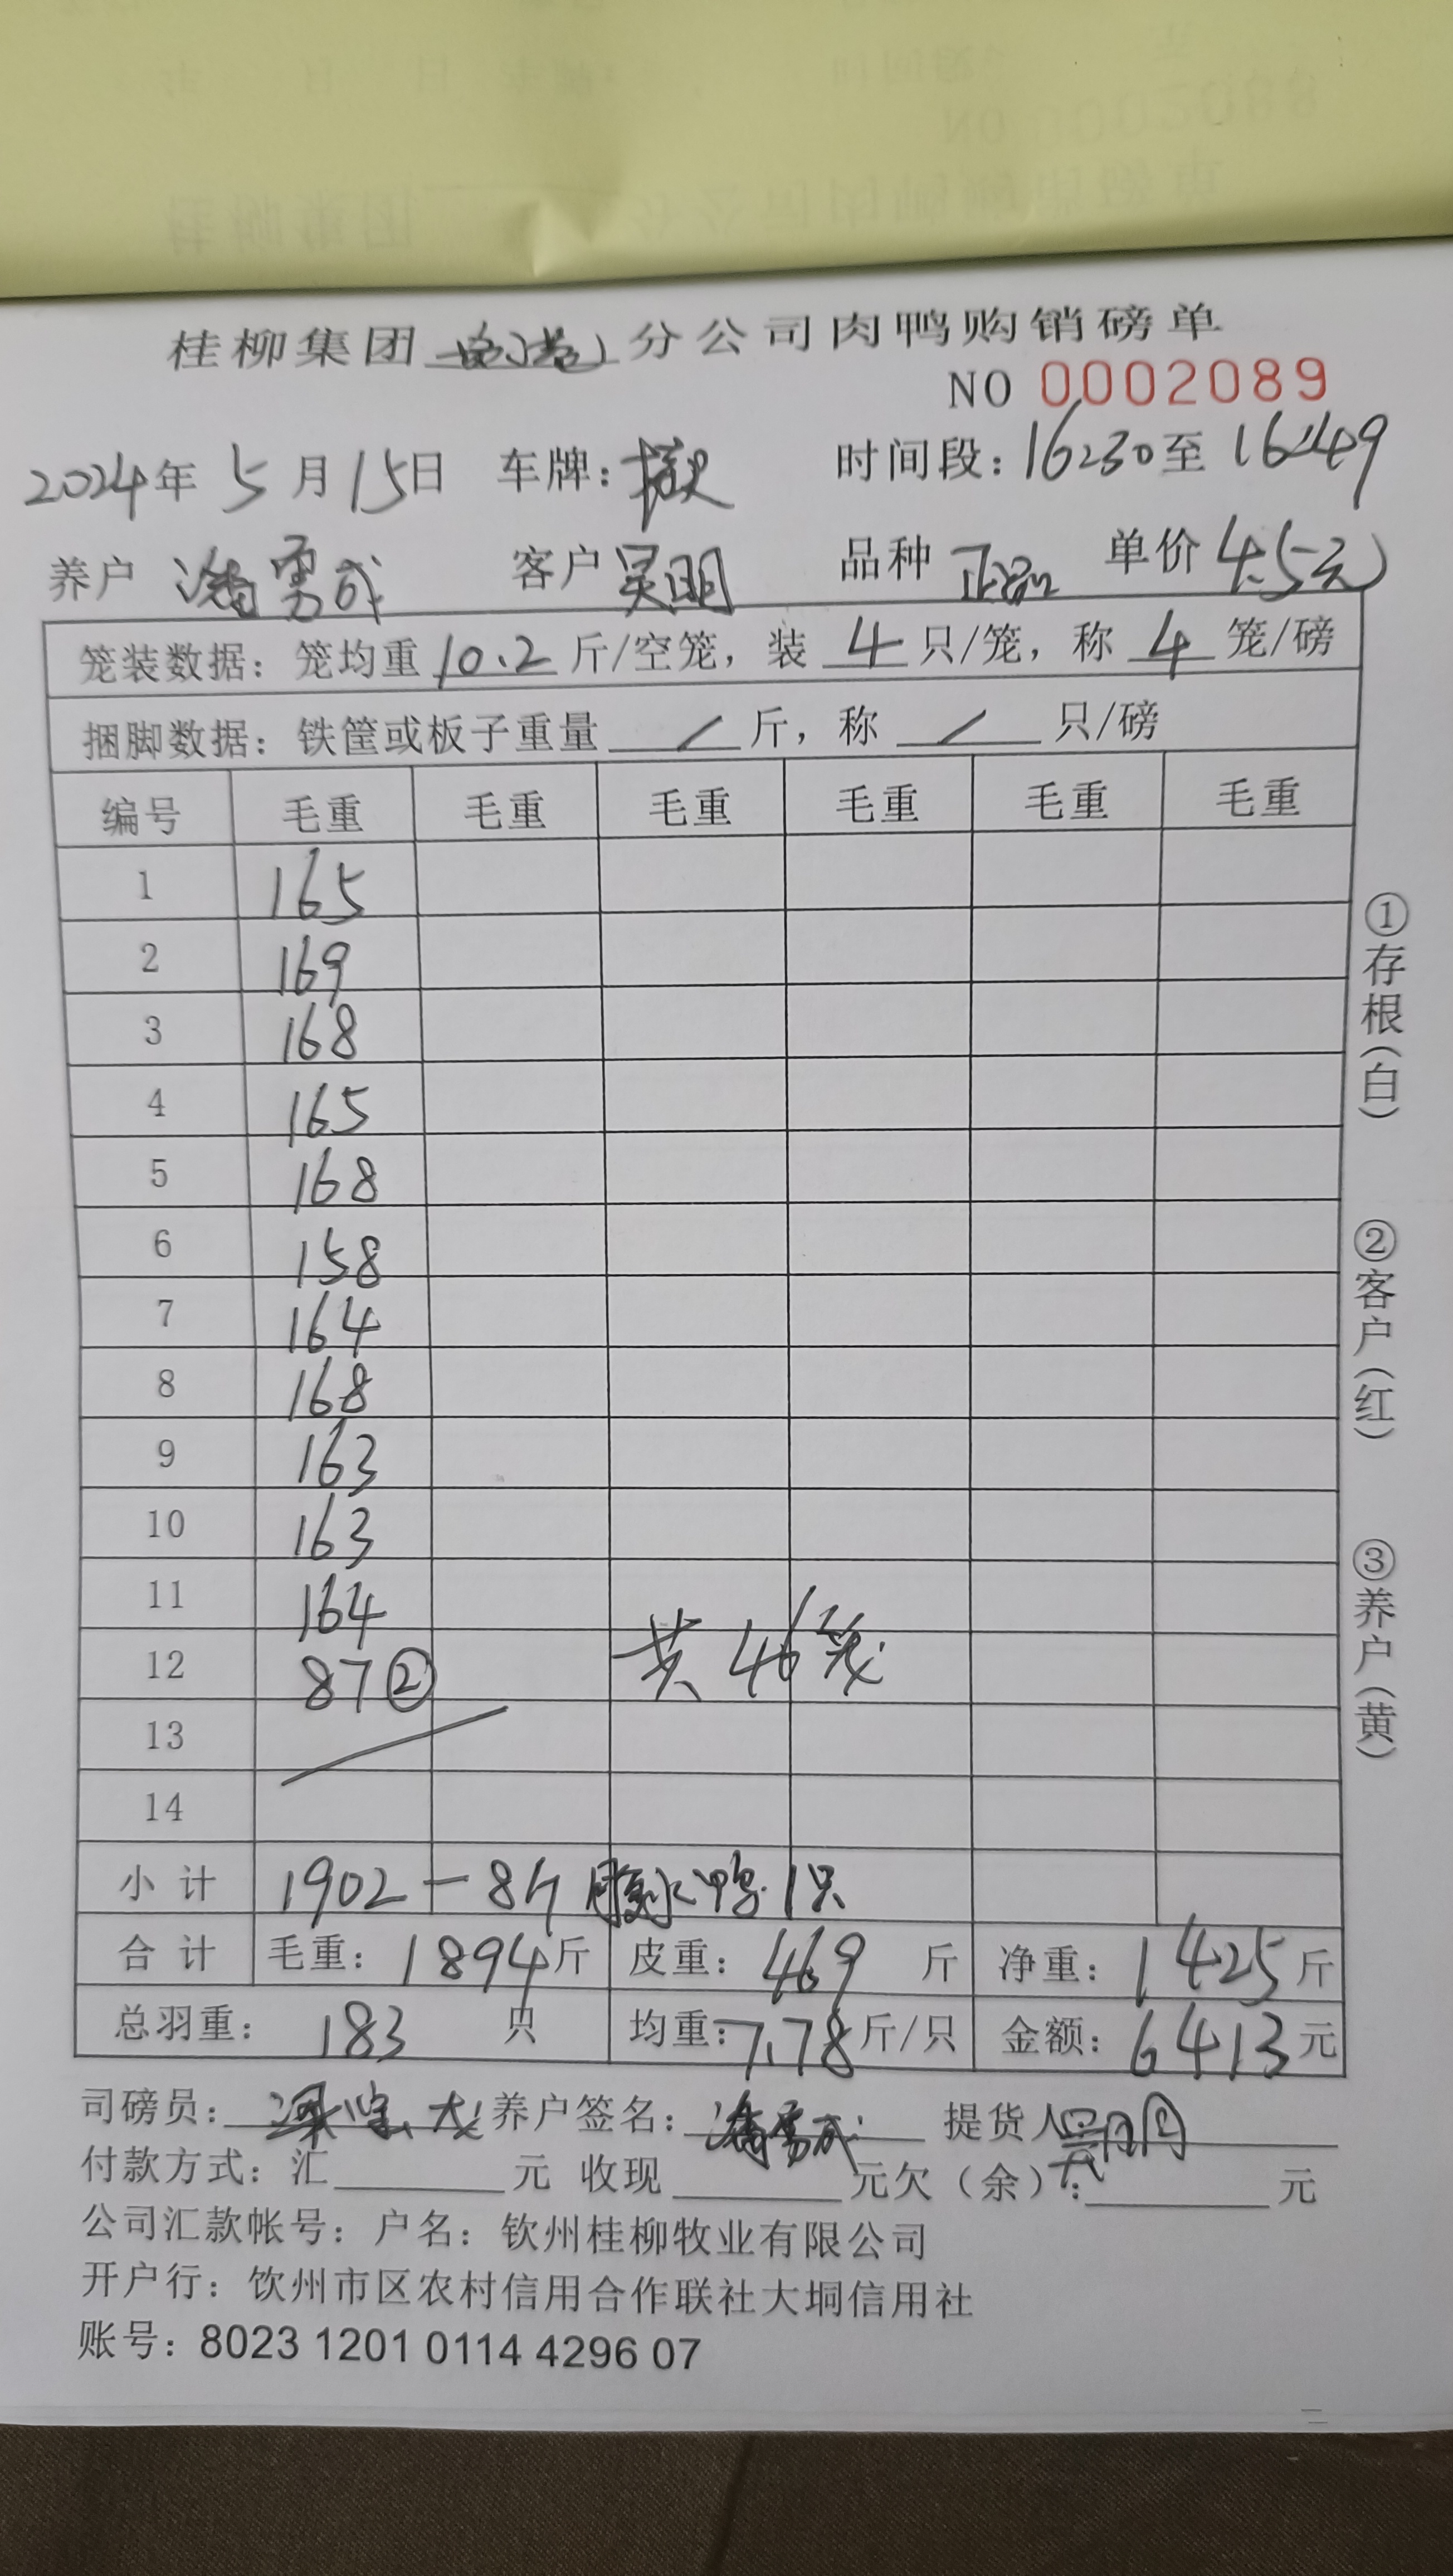 桂柳集团 分公司肉鸭购销磅单
NO 0002089
2024年 5月 15日 车牌: 时间段: 16:30 至 16:49
养户 潘勇成 客户 吴明 品种 正品 单价 4.5元
笼装数据: 笼均重 10.2 斤/空笼, 装 4 只/笼, 称 4 笼/磅
捆脚数据: 铁筐或板子重量 / 斤, 称 / 只/磅
编号 毛重 毛重 毛重 毛重 毛重 毛重
1 165
2 169
3 168
4 165
5 168
6 158
7 164
8 168
9 163
10 163
11 164
12 87 ② 共46笼
13
14
小计 1902 - 8斤 腹水鸭1只
合计 毛重: 1894 斤 皮重: 469 斤 净重: 1425 斤
总羽重: 183 只 均重: 7.78 斤/只 金额: 6413 元
司磅员: 养户签名: 潘勇成 提货人 吴明
付款方式: 汇 元 收现 元欠(余): 元
公司汇款帐号: 户名: 钦州桂柳牧业有限公司
开户行: 饮州市区农村信用合作联社大垌信用社
账号: 8023 1201 0114 4296 07
①存根(白)
②客户(红)
③养户(黄)